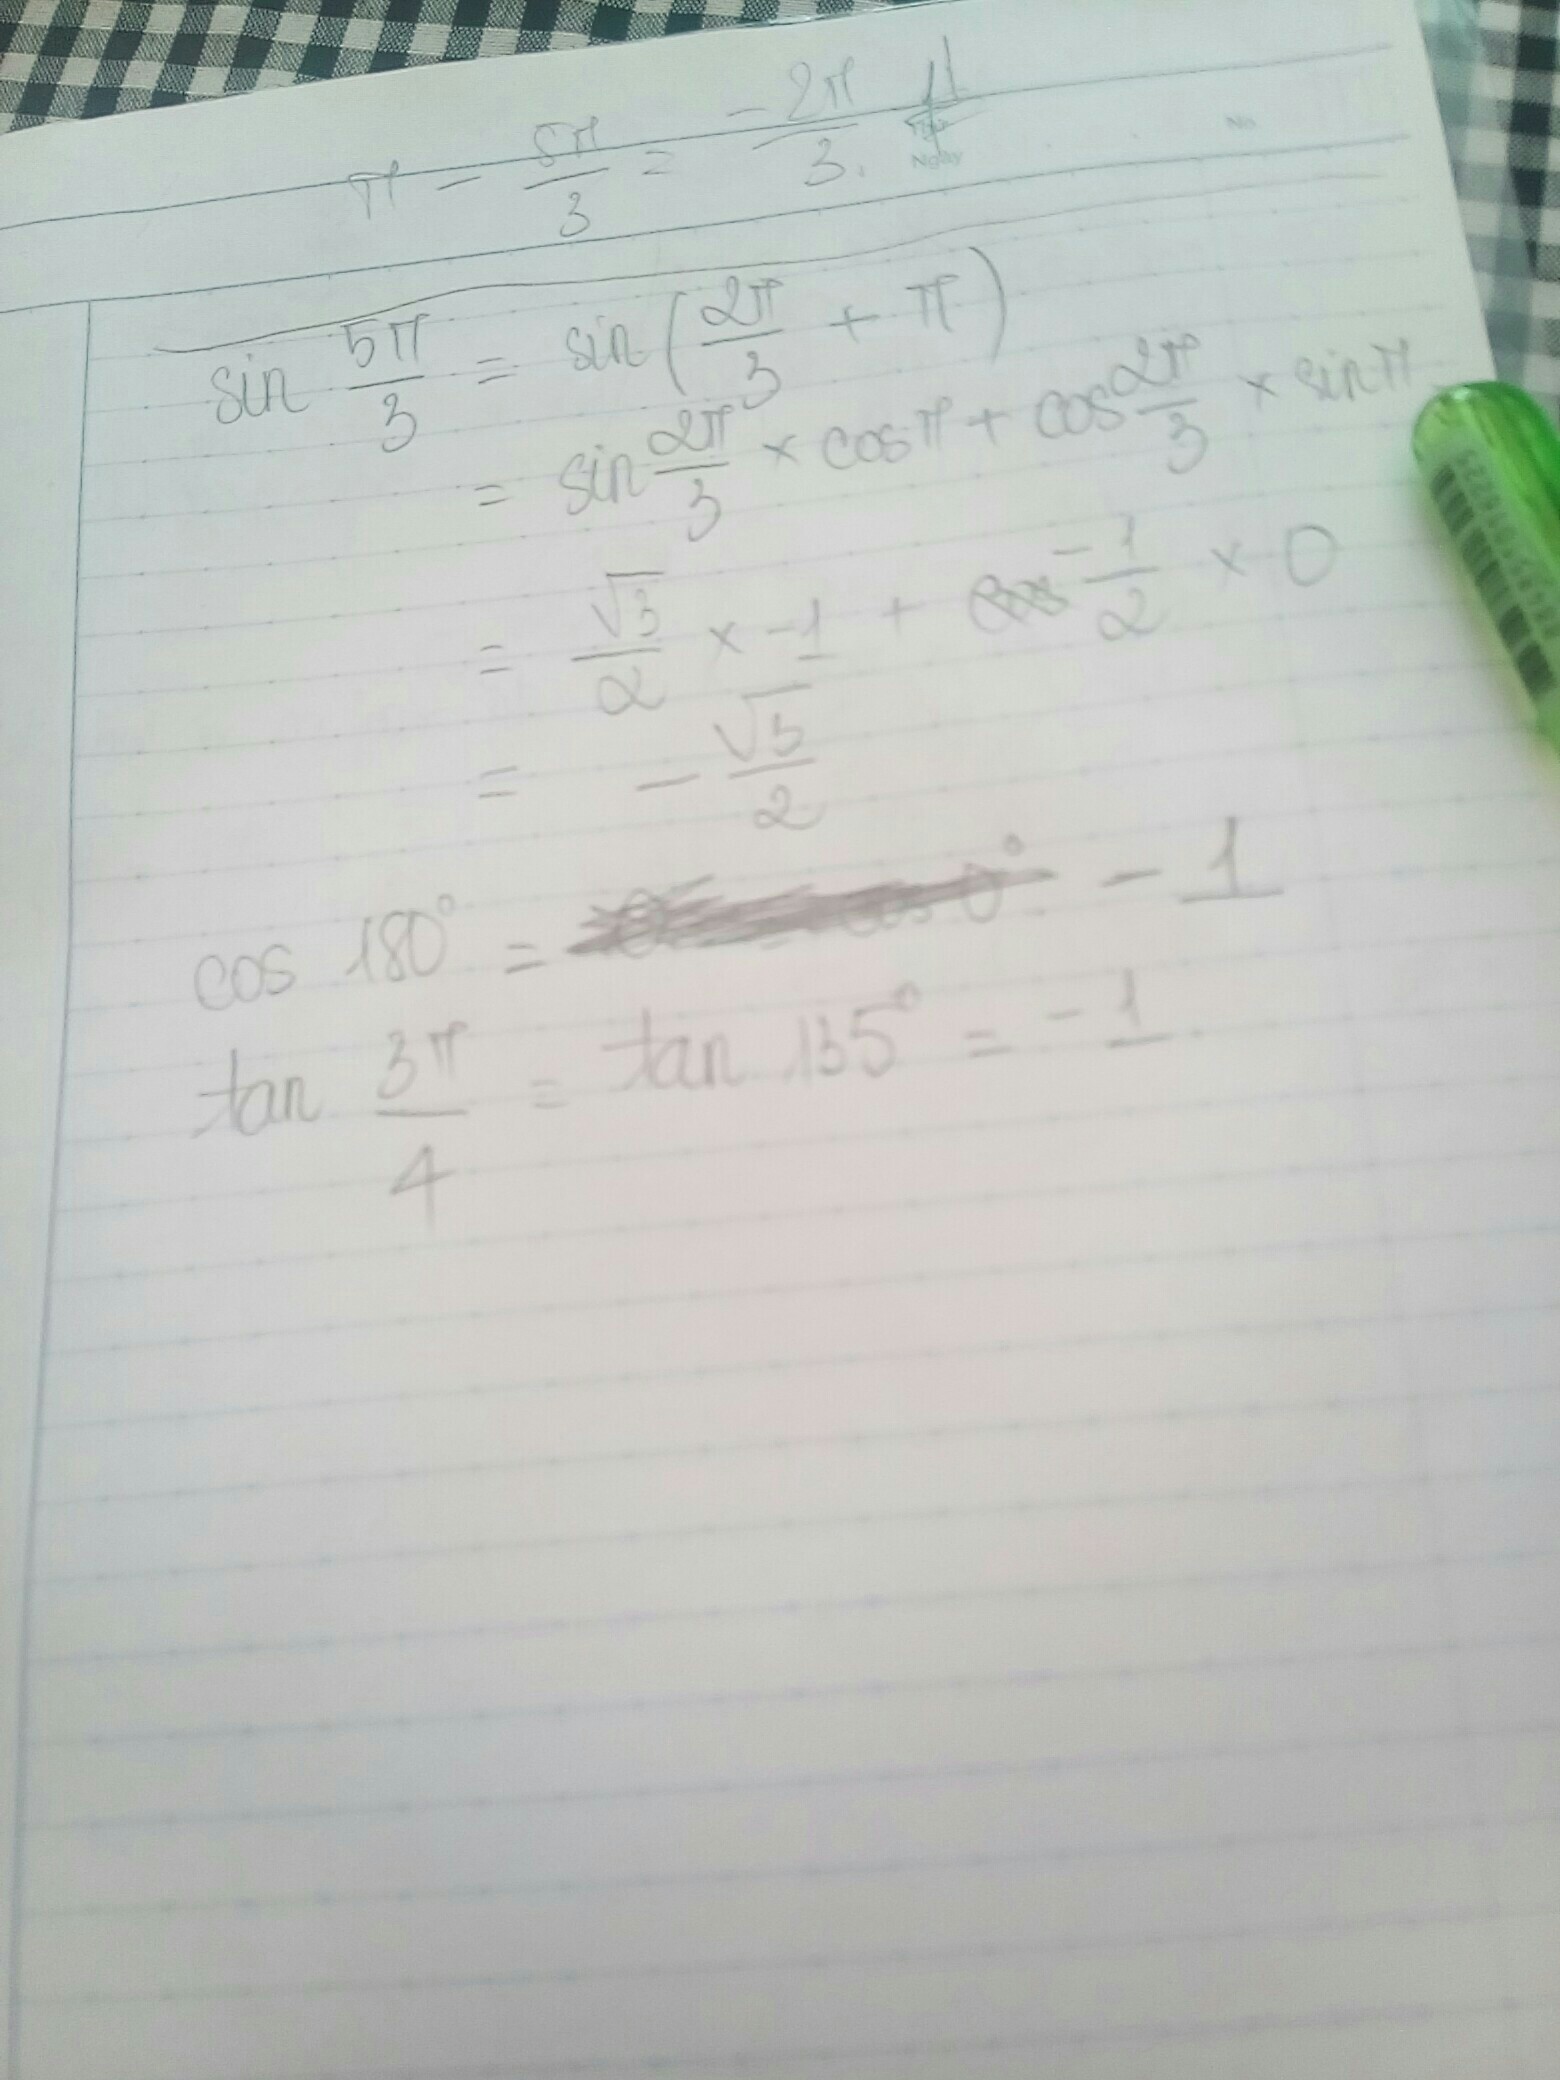 π - 5π/3 = -2π/3.
Ngày
No
sin 5π/3 = sin(2π/3 + π)
= sin 2π/3 × cos π + cos 2π/3 × sin π
= √3/2 × -1 + -1/2 × 0
= - √3/2
cos 180° = -1
tan 3π/4 = tan 135° = -1